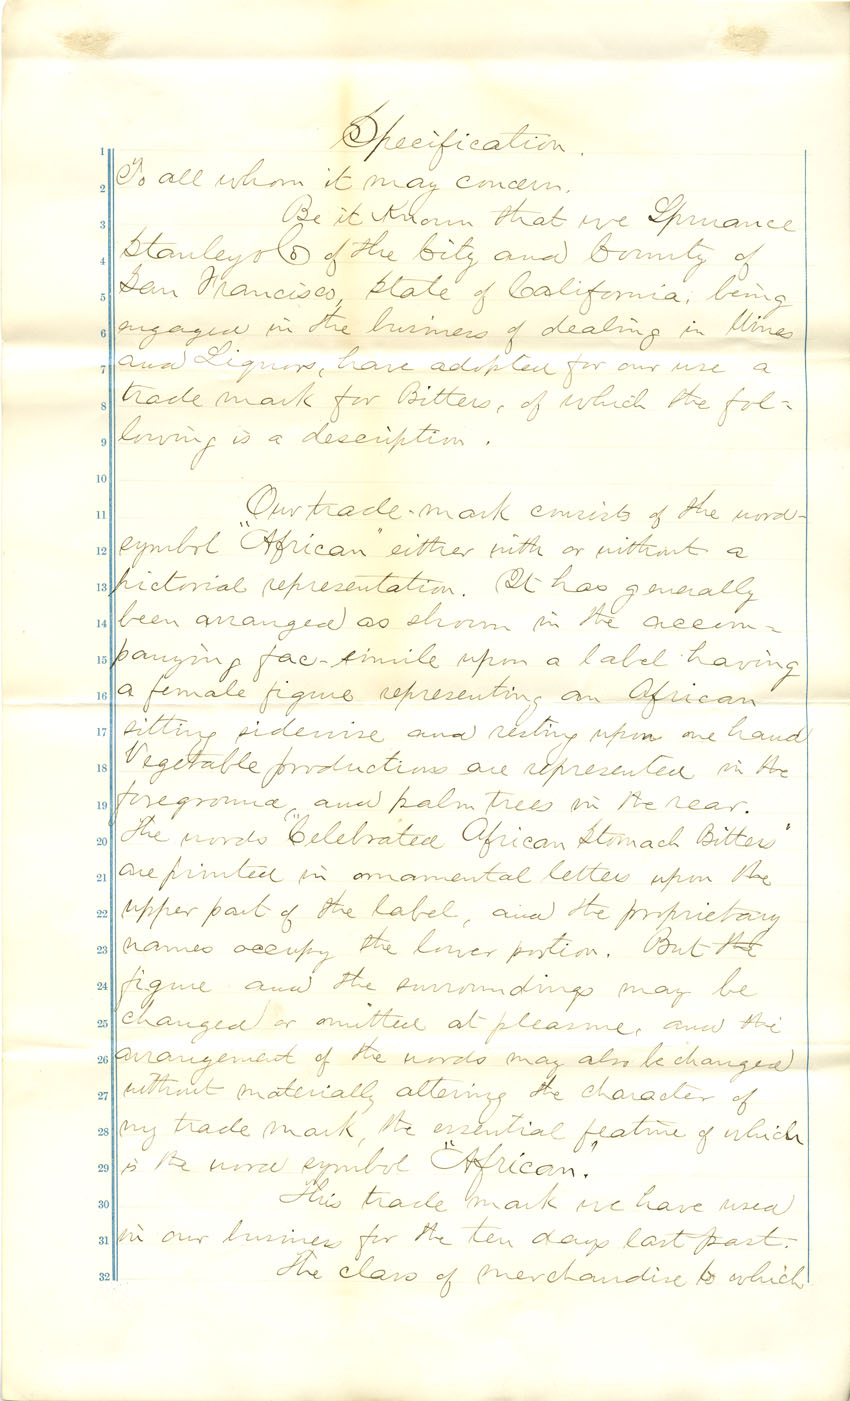 Specification.
1
To all whom it may concern.
2
Be it Known that we Spruance
3
Stanley & Co of the City and County of
4
San Francisco, State of California, being
5
engaged in the business of dealing in Wines
6
and Liquors, have adopted for our use a
7
trade mark for Bitters, of which the fol-
8
lowing is a description.
9
10
Our trade-mark consists of the word-
11
symbol "African" either with or without a
12
pictorial representation. It has generally
13
been arranged as shown in the accom-
14
panying fac-simile upon a label having
15
a female figure representing an African
16
sitting sidewise and resting upon one hand
17
Vegetable productions are represented in the
18
foreground, and palm trees in the rear.
19
The words "Celebrated African Stomach Bitters"
20
are printed in ornamental letters upon the
21
upper part of the label, and the proprietary
22
names occupy the lower portion. But the
23
figure and the surroundings may be
24
changed or omitted at pleasure, and the
25
arrangement of the words may also be changed
26
without materially altering the character of
27
my trade mark, the essential feature of which
28
is the word symbol "African."
29
This trade mark we have used
30
in our business for the ten days last past.
31
The class of merchandise to which
32